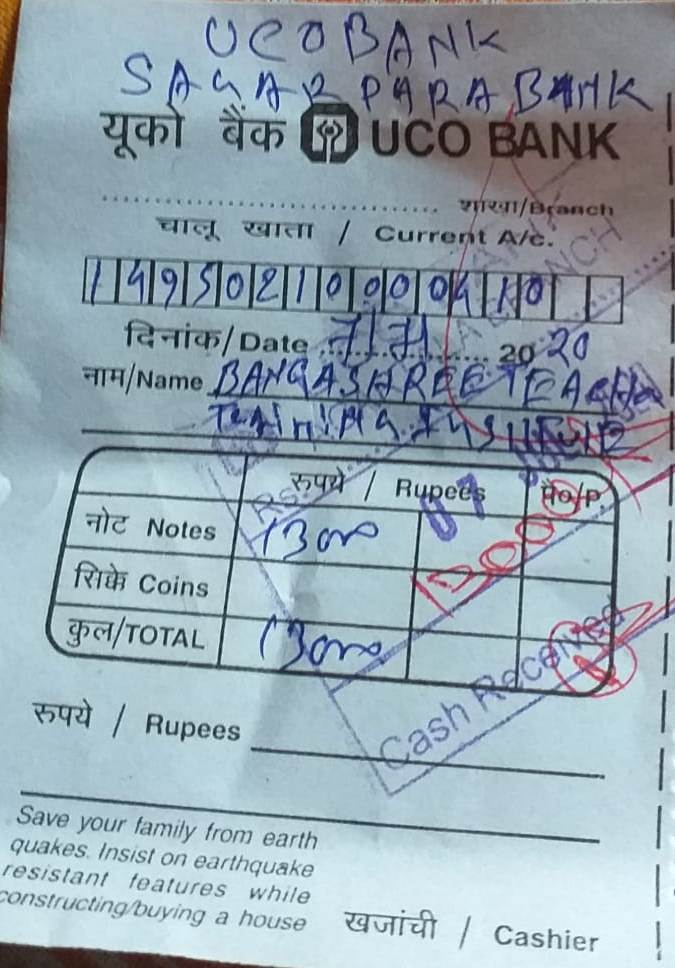 UCO BANK
SAGAR PARA BANK
यूको बैंक UCO BANK
शाखा/Branch
चालू खाता / Current A/c.
14950210000410
दिनांक/Date 20 20
नाम/Name BANGASHREE TEACHER
TRAINING
रुपये / Rupees पै०/P.
07
नोट Notes 13000
सिक्के Coins
कुल/TOTAL 13000
Cash Received
रुपये / Rupees
Save your family from earth
quakes. Insist on earthquake
resistant features while
constructing/buying a house
खजांची / Cashier